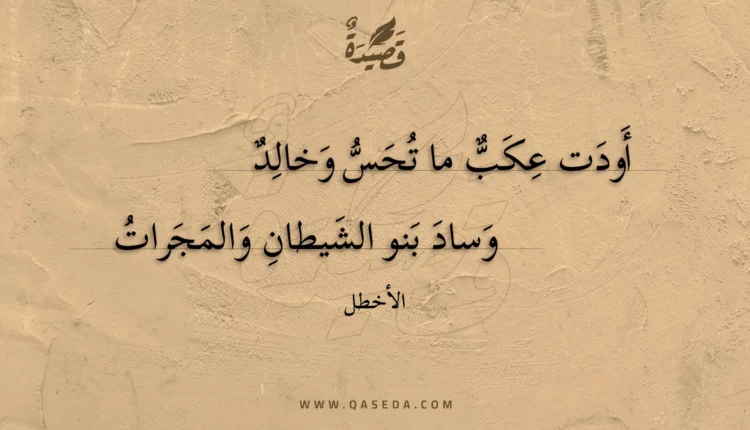 قَصِيْدَةٌ
أَودَت عِكَبٌّ ما تُحَسُّ وَخالِدٌ
وَسادَ بَنو الشَيطانِ وَالمَجَراتُ
الأخطل
WWW.QASEDA.COM